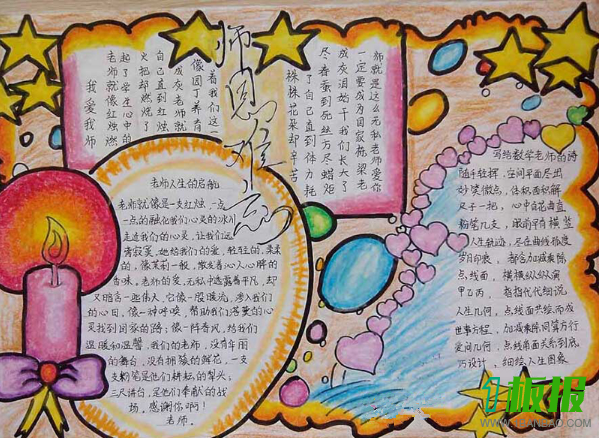 师恩难忘
我爱我师
老师就像红烛燃
起了学生心中的
火把却燃烧了
自己直到
成灰老师就
像园丁养育
着我们这一
株株花朵却辛苦
了自己直到体力耗
尽春蚕到死丝方尽蜡炬
成灰泪始干我们长大了
一定要成为国家栋梁老
师就是这么无私老师爱你
老师人生的启航
老师就像是一支红烛，一点
一点的融化我们心灵的冰川
走过我们的心灵，让我们远
离寂寞，她给我们的爱，轻轻的，柔柔
的，像茉莉一般，散发着沁人心脾的
香味。老师的爱，无私中透露着平凡，却
又暗含一些伟大，它像一股暖流，渗入我们
的心田，像一种呼唤，帮助我们落寞的心
灵找到回家的路；像一阵春风，给我们
温暖和温馨，我们的老师，没有华丽
的舞台，没有拥簇的鲜花，一支
支粉笔是他们耕耘的犁头；
三尺讲台，是他们奉献的战
场，感谢你啊！
老师。
写给数学老师的诗
随手轻挥，空间平面尽出
妙笑微点，体积面积解
尺子一把，心中自有曲直
粉笔几支，眼前有横竖
人生轨迹，尽在曲线弧度
岁月印痕，都含加减乘除
点线面，横横纵纵演
甲乙丙，卷指代代细说
人生几何，点线面共绘而成
世事方程，加减乘除同算方行
爱问几何，点线角面关系到底
巧设计，细绘人生图象
板报